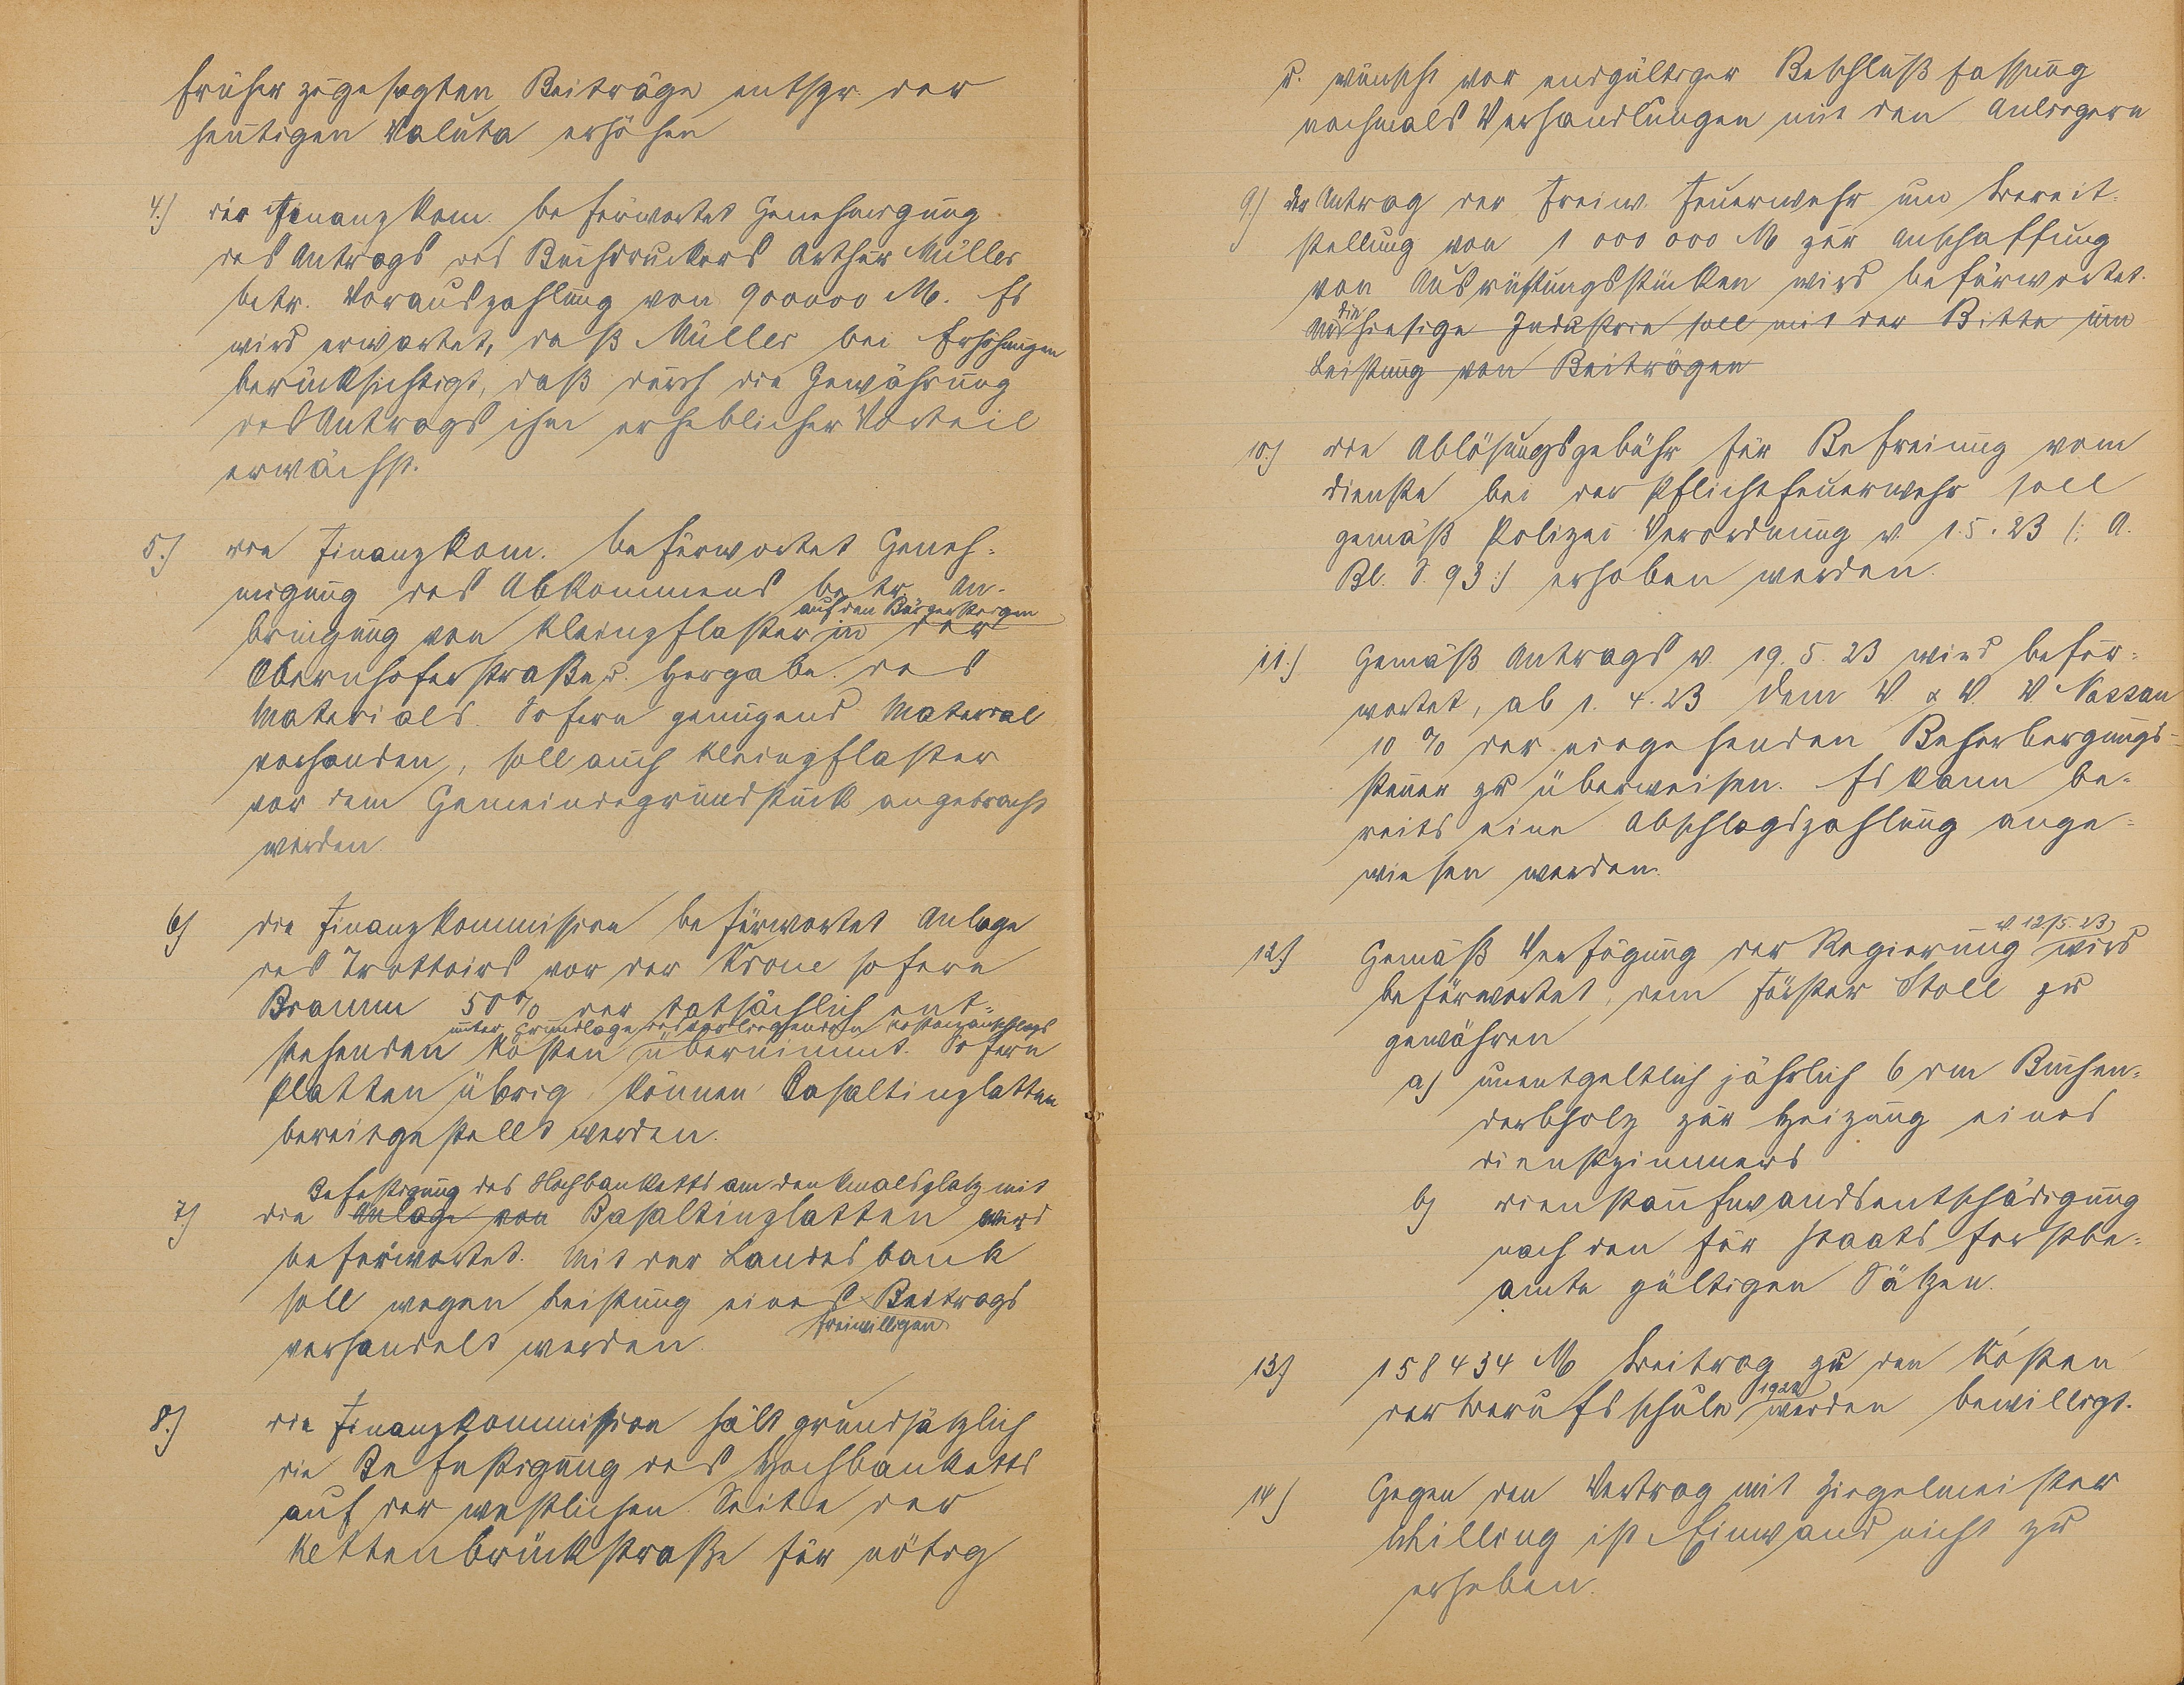 früher zugesagten Beiträge entspr. der
heutigen Valuta erhöhen
4.) die Finanzkom. befürwortet Genehmigung
des Antrags des Buchdruckers Arthur Müller
betr. Vorauszahlung von 900000 M. Es
wird erwartet, daß Müller bei Erhöhungen
berücksichtigt, daß durch die Gewährung
des Antrags ihm erheblicher Vorteil
erwächst.
5.) die Finanzkom. befürwortet Geneh-
migung des Abkommens betr. An-
auf den Bürgersteigen
bringung von Kleinpflaster in der
Obernhoferstraße u. Hergabe des
Materials. Sofern genügend Material
vorhanden, soll auch Kleinpflaster
vor dem Gemeindegrundstück angebracht
werden
6) die Finanzkommission befürwortet Anlage
des Trottoirs vor der Krone sofern
Bramm 50% der tatsächlich ent-
unter Grundlage des vorliegenden Kostenanschlags
stehenden Kosten übernimmt. Sofern
Platten übrig können Basaltinplatten
bereitgestellt werden.
Befestigung des Hochbanketts am Denkmalsplatz mit
7) die Anlage von Basaltinplatten wird
befürwortet. Mit der Landesbank
soll wegen Leistung eines Beitrags
freiwilligen
verhandelt werden.
8.) die Finanzkommission hält grundsätzlich
die Befestigung des Hochbanketts
auf der westlichen Seite der
Kettenbrückstraße für nötig
u. wünscht vor endgültiger Beschlußfassung
nochmals Verhandlungen mit den Anliegern
9.) der Antrag der Freiw. Feuerwehr um Bereit-
stellung von 1 000 000 M zur Anschaffung
von Ausrüstungsstücken wird befürwortet.
die
hiesige Industrie soll mit der Bitte um
Leistung von Beiträgen
10.) die Ablösungsgebühr für Befreiung vom
Dienste bei der Pflichtfeuerwehr soll
gemäß Polizei Verordnung v. 1.5.23 (: A.
Bl. S. 93 :) erhoben werden.
11.) Gemäß Antrags v. 19.5.23 wird befür-
wortet, ab 1.4.23 dem V. & V. V. Nassau
10 % der eingehenden Beherbergungs-
steuer zu überweisen. Es kann be-
reits eine Abschlagszahlung ange-
wiesen werden.
v. 12/5.23
12.) Gemäß Verfügung der Regierung wird
befürwortet, dem Förster Stoll zu
gewähren
a) unentgeltlich jährlich 6 rm Buchen-
derbholz zur Heizung eines
Dienstzimmers
b) Dienstaufwandsentschädigung
nach den für Staatsforstbe-
amte gültigen Sätzen.
13.) 158434 M Beitrag zu den Kosten
1922
der Berufsschule werden bewilligt.
14) Gegen den Vertrag mit Ziegelmeister
Schilling ist Einwand nicht zu
erheben.